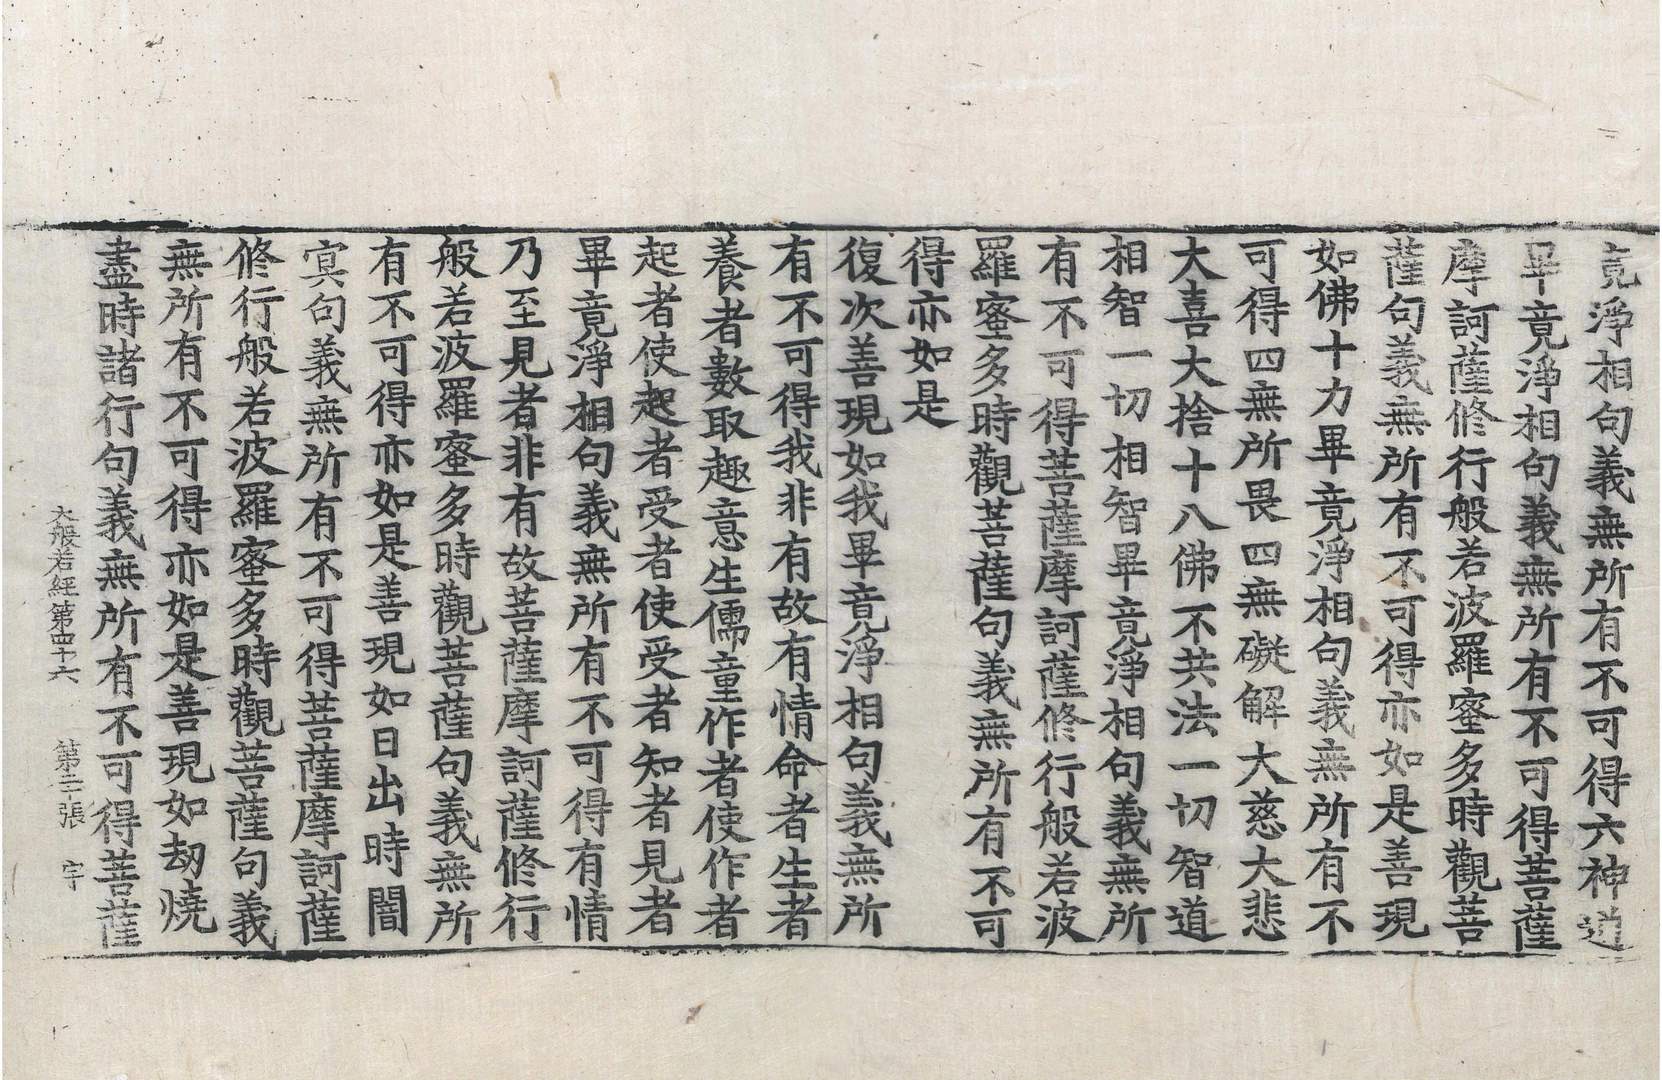 竟淨相句義無所有不可得六神道
畢竟淨相句義無所有不可得菩薩
摩訶薩修行般若波羅蜜多時觀菩
薩句義無所有不可得亦如是善現
如佛十力畢竟淨相句義無所有不
可得四無所畏四無礙解大慈大悲
大喜大捨十八佛不共法一切智道
相智一切相智畢竟淨相句義無所
有不可得菩薩摩訶薩修行般若波
羅蜜多時觀菩薩句義無所有不可
得亦如是
復次善現如我畢竟淨相句義無所
有不可得我非有故有情命者生者
養者數取趣意生儒童作者使作者
起者使起者受者使受者知者見者
畢竟淨相句義無所有不可得有情
乃至見者非有故菩薩摩訶薩修行
般若波羅蜜多時觀菩薩句義無所
有不可得亦如是善現如日出時闇
㝠句義無所有不可得菩薩摩訶薩
修行般若波羅蜜多時觀菩薩句義
無所有不可得亦如是善現如劫燒
盡時諸行句義無所有不可得菩薩
大般若經第四十六 第二張 宇